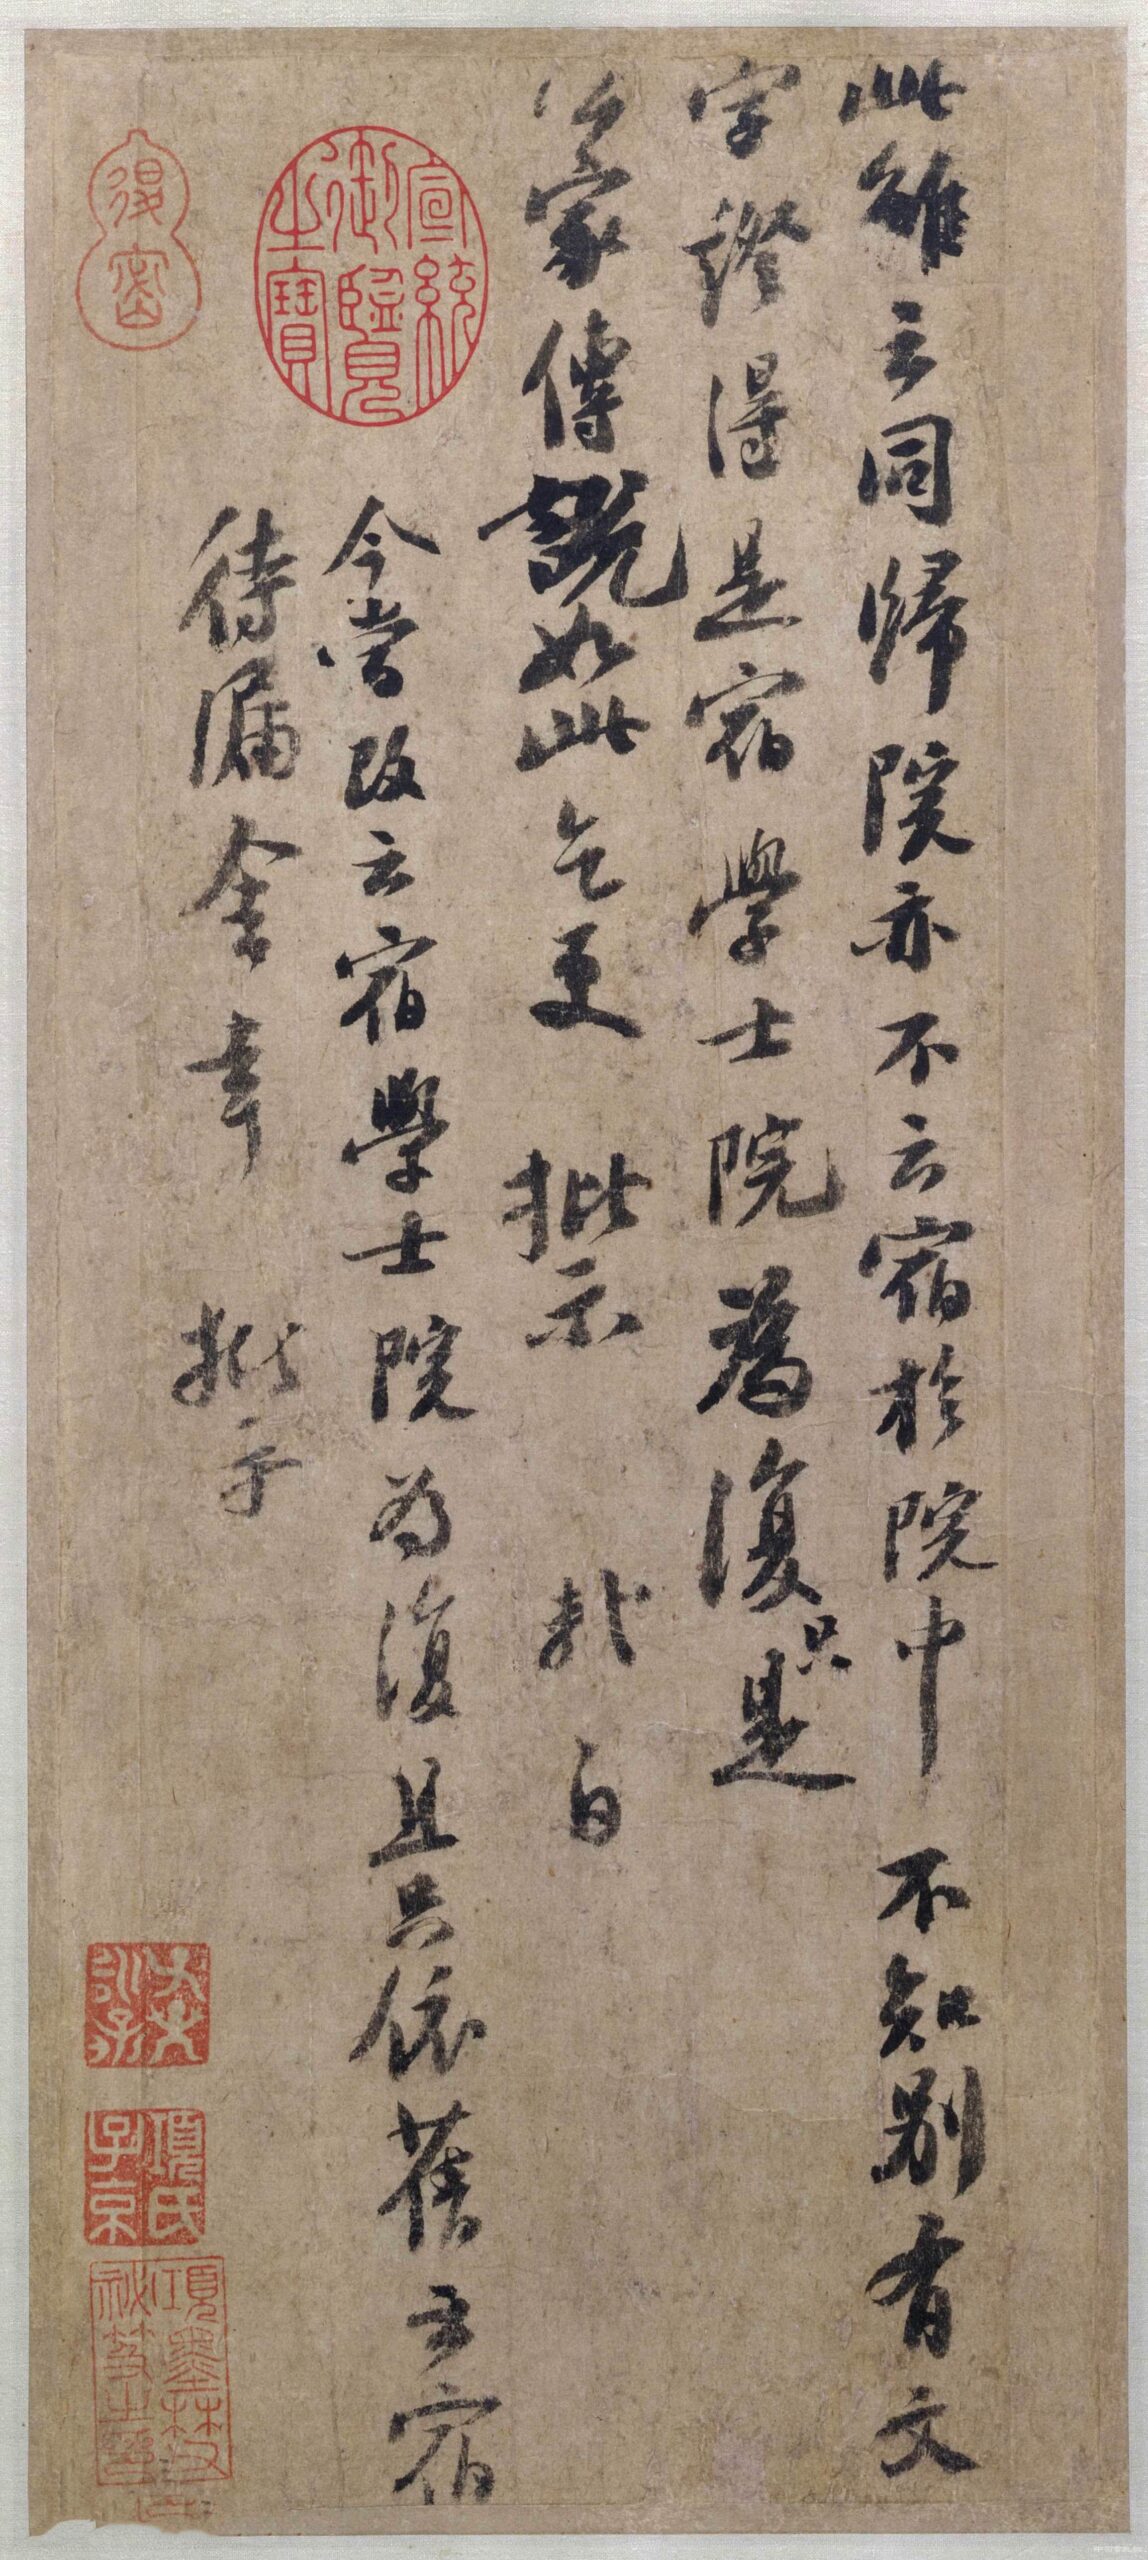 此雖云同歸院亦不云宿於院中不知別有文
字證得是宿學士院爲復只是
公家傳說如此乞更批示 敞白
今嘗改云宿學士院为復且只依舊云宿
待漏舍幸批示
宣統御覽之寶
得密
項氏子京
項墨林父祕笈之印